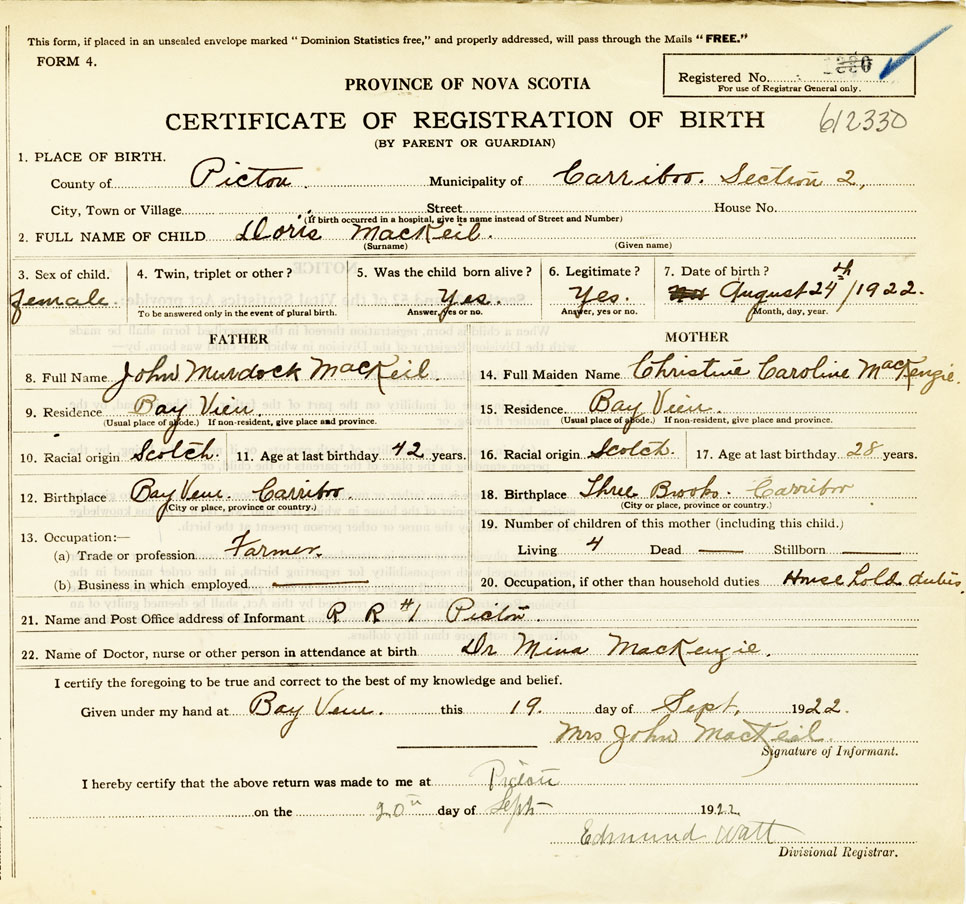 This form, if placed in an unsealed envelope marked " Dominion Statistics free," and properly addressed, will pass through the Mails "FREE."
FORM 4.
Registered No.
For use of Registrar General only.
PROVINCE OF NOVA SCOTIA
CERTIFICATE OF REGISTRATION OF BIRTH 612330
(BY PARENT OR GUARDIAN)
1. PLACE OF BIRTH.
County of Picton Municipality of Carriboo. Section 2,
City, Town or Village Street House No.
(If birth occurred in a hospital, give its name instead of Street and Number)
2. FULL NAME OF CHILD Doris MacKeil.
(Surname) (Given name)
3. Sex of child. 4. Twin, triplet or other? 5. Was the child born alive? 6. Legitimate? 7. Date of birth?
female. Yes. Yes. August 24th/1922.
To be answered only in the event of plural birth. Answer, yes or no. Answer, yes or no. Month, day, year.
FATHER MOTHER
8. Full Name John Murdock MacKeil. 14. Full Maiden Name Christine Caroline MacKenzie.
9. Residence Bay View. 15. Residence. Bay View.
(Usual place of abode.) If non-resident, give place and province. (Usual place of abode.) If non-resident, give place and province.
10. Racial origin Scotch. 11. Age at last birthday 42 years. 16. Racial origin Scotch. 17. Age at last birthday 28 years.
12. Birthplace Bay View. Carriboo. 18. Birthplace Three Brooks. Carriboo
(City or place, province or country.) (City or place, province or country.)
13. Occupation:— 19. Number of children of this mother (including this child.)
(a) Trade or profession Farmer. Living 4 Dead — Stillborn —
(b) Business in which employed — 20. Occupation, if other than household duties House hold duties.
21. Name and Post Office address of Informant R R #1 Picton.
22. Name of Doctor, nurse or other person in attendance at birth Dr Mina MacKenzie.
I certify the foregoing to be true and correct to the best of my knowledge and belief.
Given under my hand at Bay View. this 19. day of Sept, 1922.
Mrs John MacKeil.
Signature of Informant.
I hereby certify that the above return was made to me at Picton
on the 20th day of Sept 1922
Edmund Watt
Divisional Registrar.